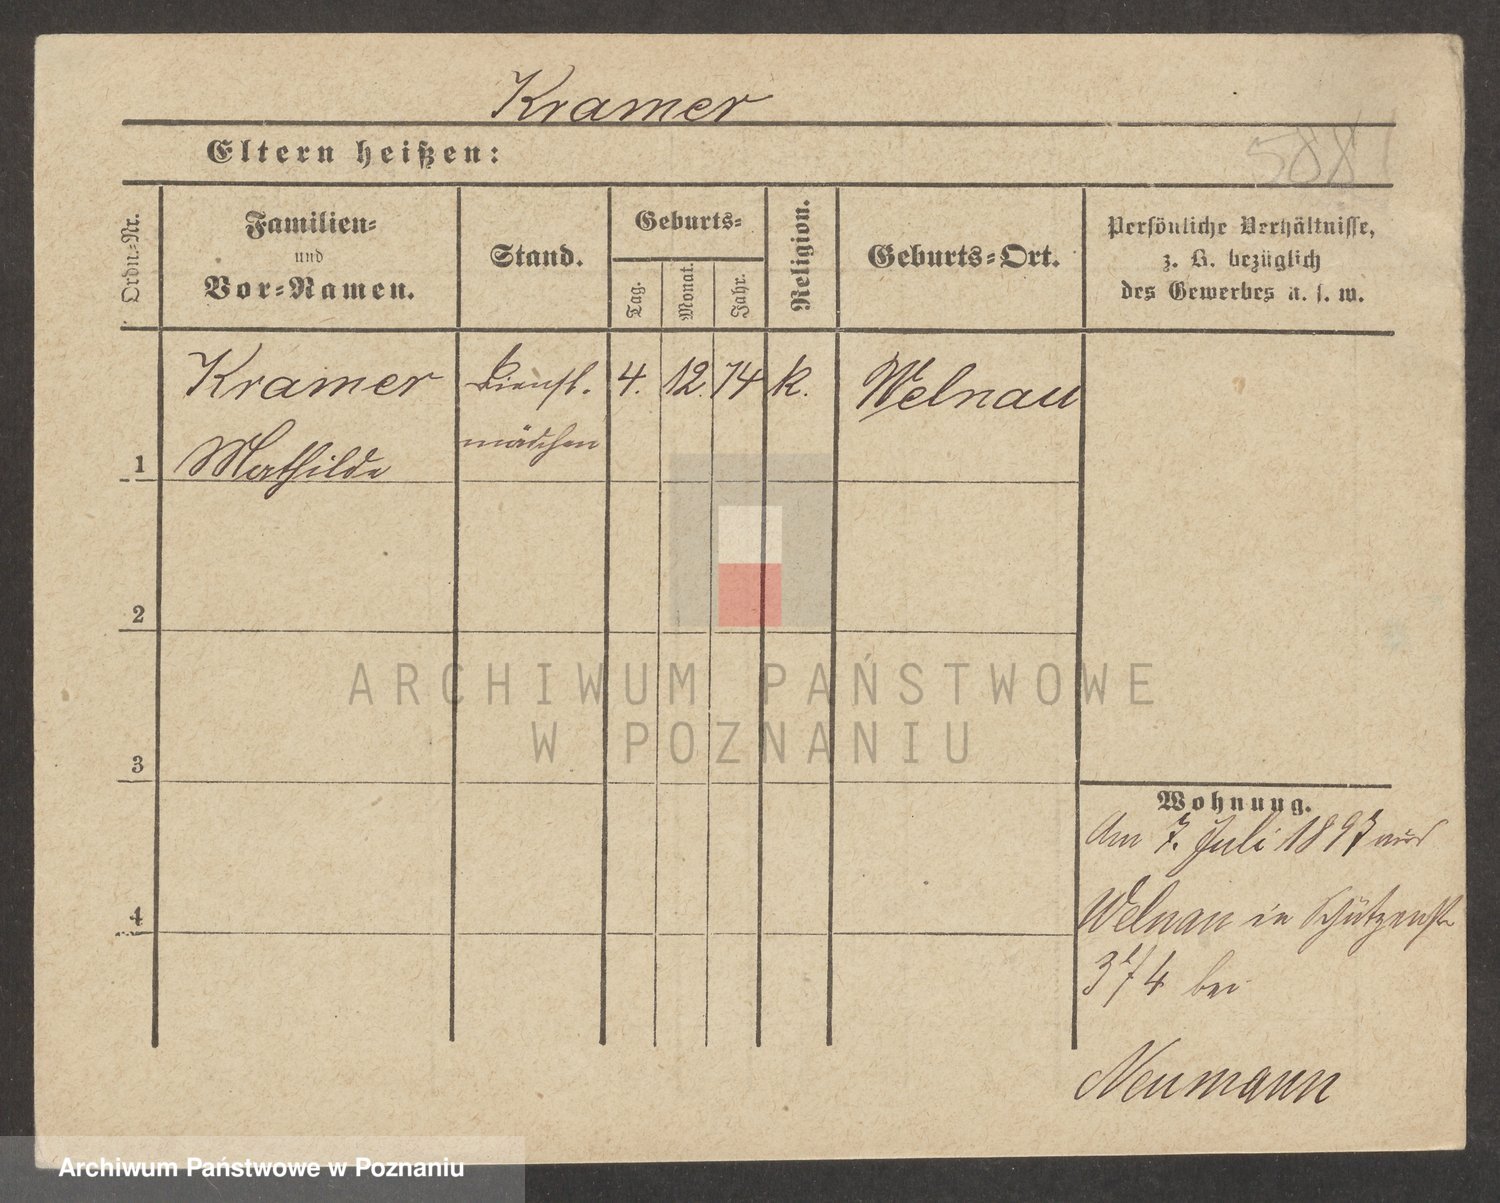 Kramer
Eltern heißen:
588
Ordn.-Nr.
Familien-
und
Vor-Namen.
Stand.
Geburts-
Tag.
Monat.
Jahr.
Religion.
Geburts-Ort.
Persönliche Verhältnisse,
z. B. bezüglich
des Gewerbes u. s. w.
Kramer Dienst. 4. 12. 74 k. Welnau
1 Mathilde mädchen
2
3
4
Wohnung.
Am 7. Juli 1897 aus
Welnau in Schützenstr
3/4 bei
Neumann
ARCHIWUM PAŃSTWOWE
W POZNANIU
Archiwum Państwowe w Poznaniu